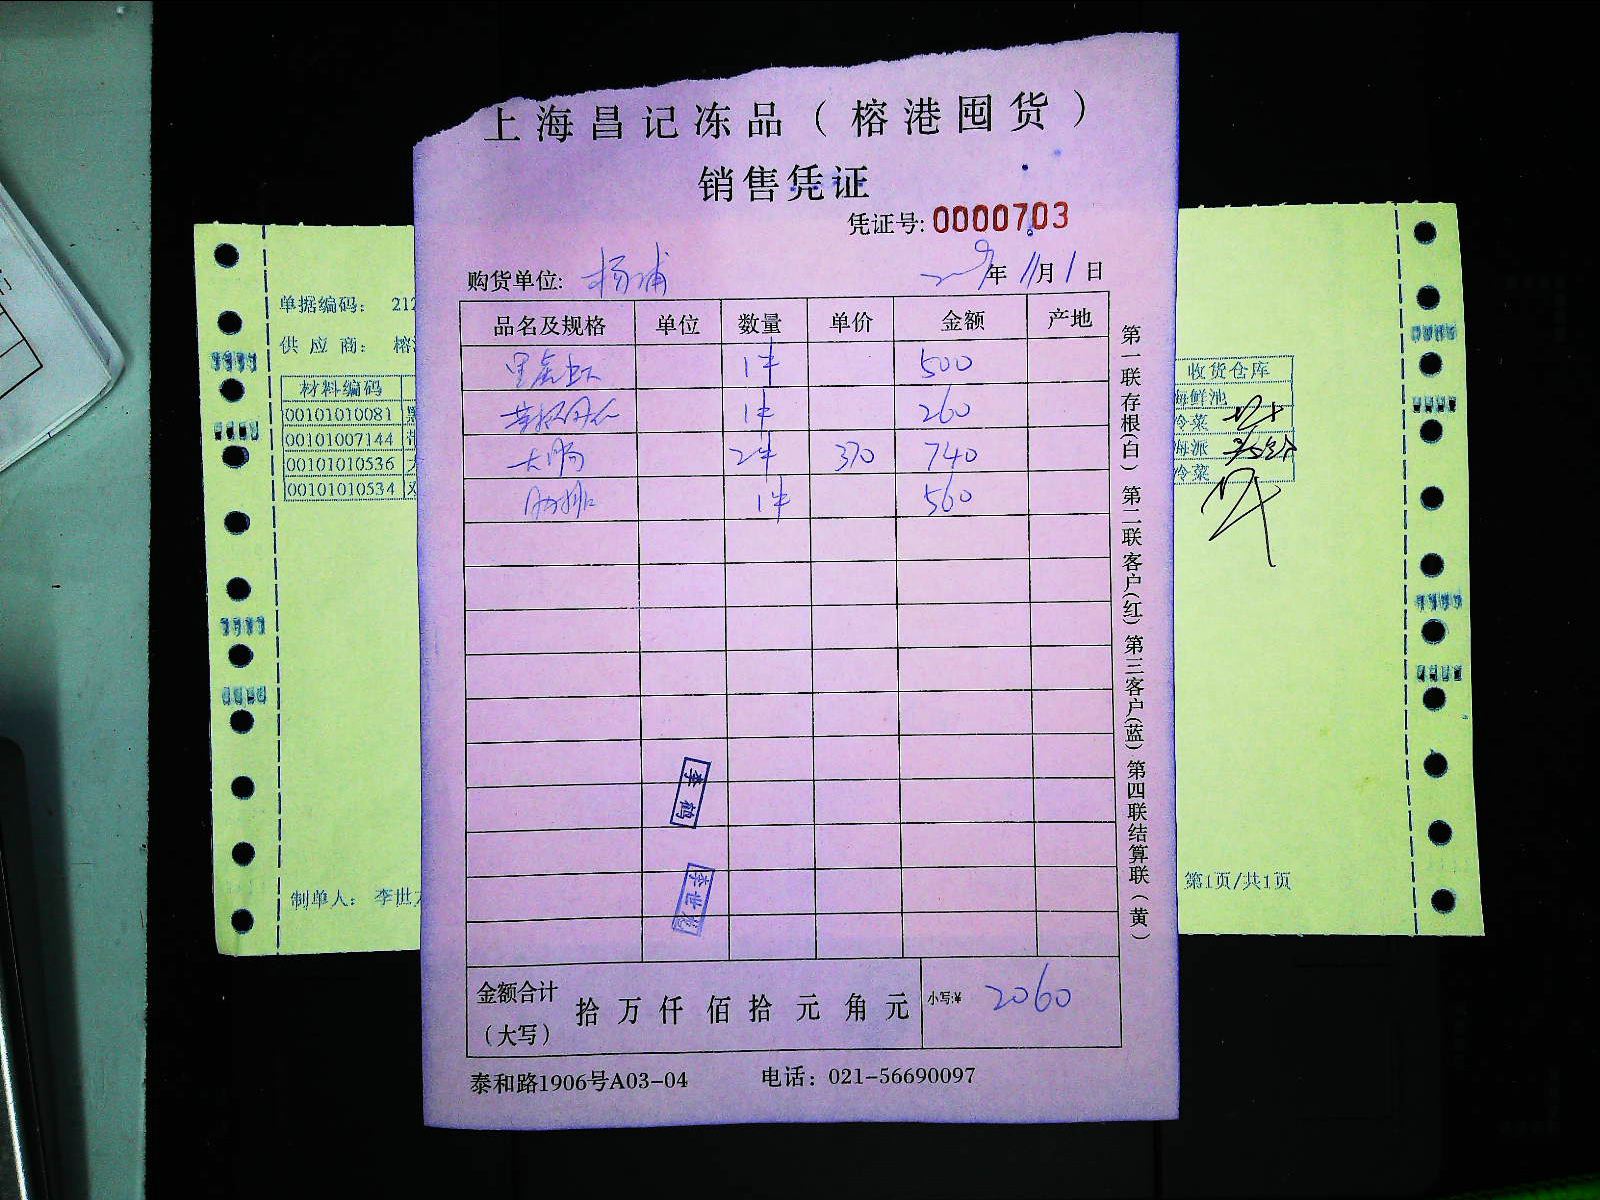 上海昌记冻品（榕港囤货）
销售凭证
凭证号: 0000703
购货单位: 杨浦 年 11月 1日
品名及规格 单位 数量 单价 金额 产地
1件 500
1件 260
大肠 2件 370 740
肋排 1件 560
李鹤
李世
金额合计（大写） 拾万仟佰拾元角元 小写:¥ 2060
泰和路1906号A03-04 电话：021-56690097
第一联存根(白) 第二联客户(红) 第三客户(蓝) 第四联结算联（黄）
单据编码： 212
供应商： 榕
材料编码
00101010081
00101007144
00101010536 大
00101010534
制单人： 李世
收货仓库
海鲜池
冷菜
海派
冷菜
第1页/共1页